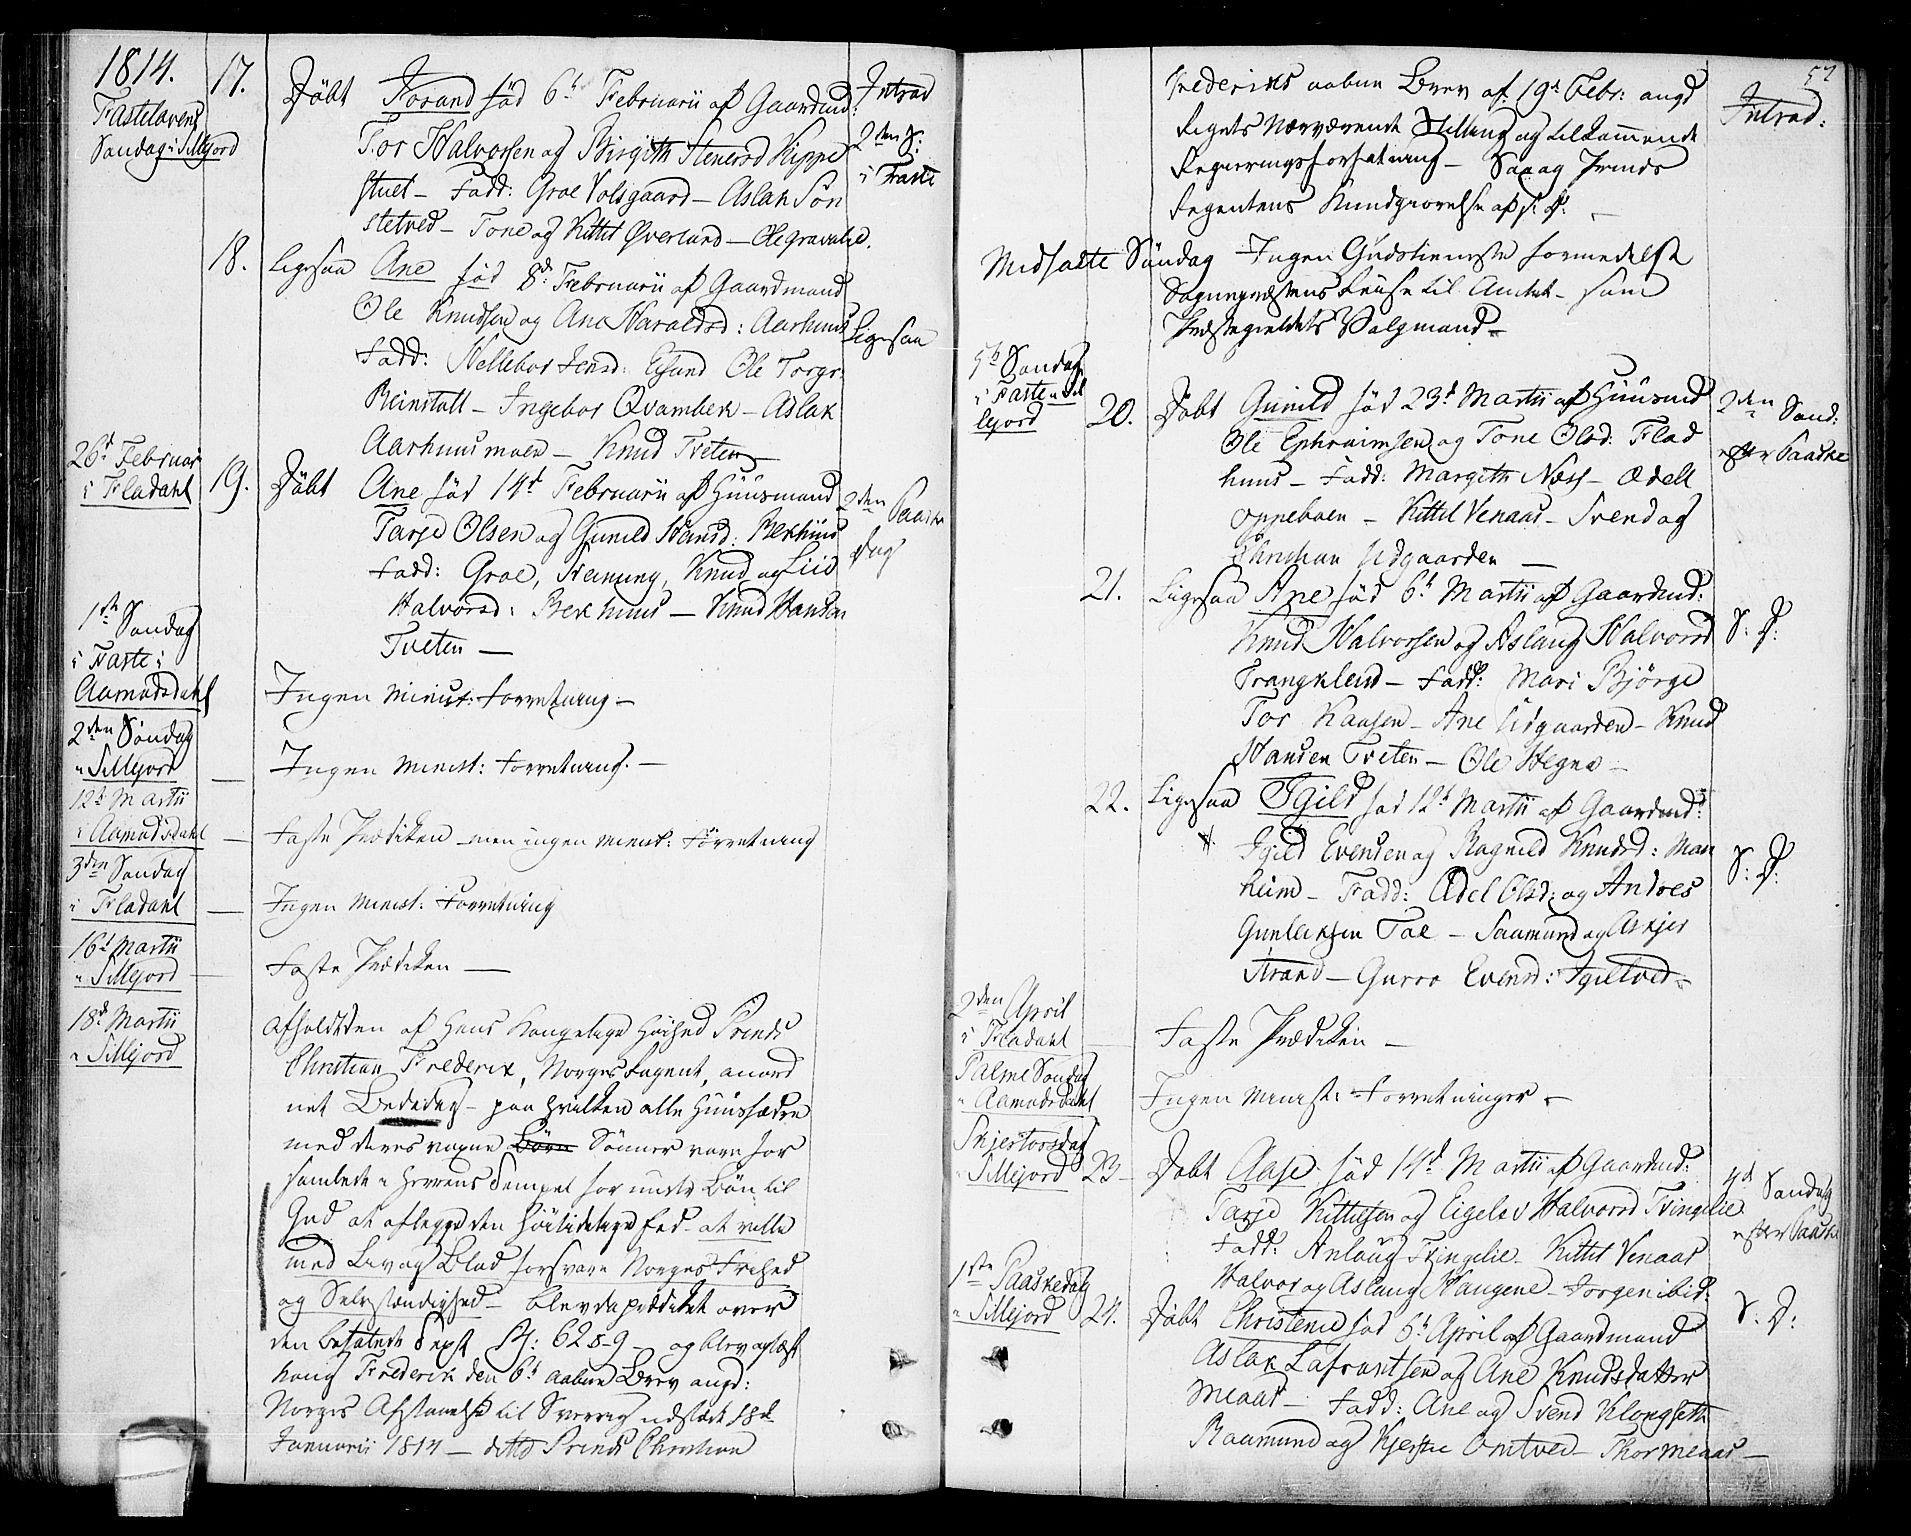 1814.
Fastelavens
Søndag i Sillejord
17.
Døbt Torand fød 6t Februarii af Gaardmd:
Tor Halvorsen og Birgith Stenersd Kippe
stuel – Fadd: Groe Volsgaard – Aslak Søn
stetved – Tone og Kittil Øverland – Ole Gravalie.
Introd
2den S:
i Faste
18.
Ligesaa Ane fød 8d Februarii af Gaardmand
Ole Knudsen og Ane Haraldsd: Aarhuus
Fadd: Hellebor Jensd: Ole Torgr:
Reinstall – Ingebor Qvambek – Aslak
Aarhuusmoen – Knud Tveten –
Ligesaa
26d Februar
i Fladahl
19.
Døbt Ane fød 14d Februarii af Huusmand
Tarje Olsen og Gunild Hansd: Bekhuus
Fadd: Groe, Hemming, Knud og Liid
Halvorsd: Bekhuus – Knud Hansen
Tveten –
2den Paaske
Dag
1ste Søndag
i Faste i
Aamodsdahl
Ingen Minist: Forretning –
2den Søndag
i Sillejord
Ingen Minist: Forretning. –
12te Martii
i Aamodsdahl
Faste Prædiken – men ingen Minist: Forretning
3den Søndag
i Fladahl
Ingen Minist: Forretning
16d Martii
i Sillejord
Faste Prædiken –
18d Martii
i Sillejord
Afholdtes den af Hans Kongelige Høihed Prinds
Christian Frederik, Norges Regent, anord
net Bededag – paa hvilken alle Huusfædre
med deres voxne Børn Sønner vare for
samlede i Herrens Tempel for under Bøn til
Gud at aflegge den høitidelige Eed – at ville
med Liv og Blod forsvare Norges Frihed
og Selvstændighed – blev da prædiket over
den befalede Text Ps: 62 8-9 – og blev oplæst
Kong Frederik den 6t aabne Brev angd:
Norges Afstaaelse til Sverrig udstædt 18de
Januarii 1814 – ditto Prinds Christian
52
Frederiks aabne Brev af 19d Febr: angd
Rigets nærværende Stilling og tilkommende
Regieringsforfatning – Saa og Prinds
Regentens Kundgiørelse af s: D: –
Introd:
Midfaste Søndag Ingen Gudstieneste formedelst
Sognepræstens Reise til Amtet – som
Præstegieldets Valgmand –
5te Søndag
i Faste i Sil
lejord
20.
Døbt Gunild fød 23d Martii af Huusmd
Ole Ephraimsen og Tone Olsd: Flad
huus – Fadd: Margith Næss – Ødell
Oppeboen – Kittil Venaas – Svend og
Christian Udgaarden –
2den Sønd:
efter Paaske
21.
Ligesaa Ane fød 6t Martii af Gaardmd:
Knud Halvorsen og Aslaug Halvorsd
Trangkleiv – Fadd: Mari Bjørge
Tor Kaasen – Ane Udgaarden – Knud
Hansen Tveten – Ole Hegna –
S: D:
22.
Ligesaa Igild fød 12t Martii af Gaardmd:
Igild Evensen og Ragnild Knudsd: Man
heim – Fadd: Ødel Olsd: og Andres
Gunleiksen Toe – Saamund og Askjer
Strand – Gurro Evensd: Igiltved –
S: D:
2den April
i Fladahl
Faste Prædiken –
Palme Søndag
i Aamodsdahl
Ingen Minist: Forretninger –
Skjertorsdag
i Sillejord
23
Døbt Aase fød 14d Martii af Gaardmd:
Tarje Kittilsen og Eigelev Halvorsd Tvingelie
Fadd: Anlaug Tvingelie – Kittil Venaas
Halvor og Aslaug Haugene – Jorgen ibid:
4d Søndag
efter Paaske
1ste Paaskedag
i Sillejord
24.
Døbt Christence fød 6t April af Gaardmand
Aslak Lafrantsen og Ane Knudsdatter
Meaas – Fadd: Ane og Svend Klongseth
Raamund og Kjersti Omtved – Thor Meaas –
S: D: